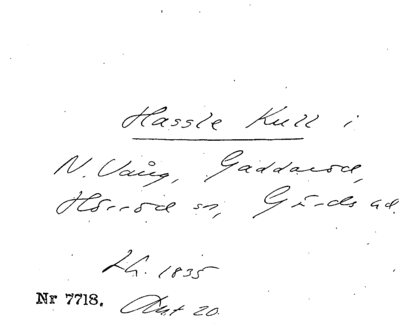 Hassle Kull i
N. Vång, Gaddaröd,
Hörröd sn, Gärds hd.
LG. 1835
Nr 7718. Akt 20.